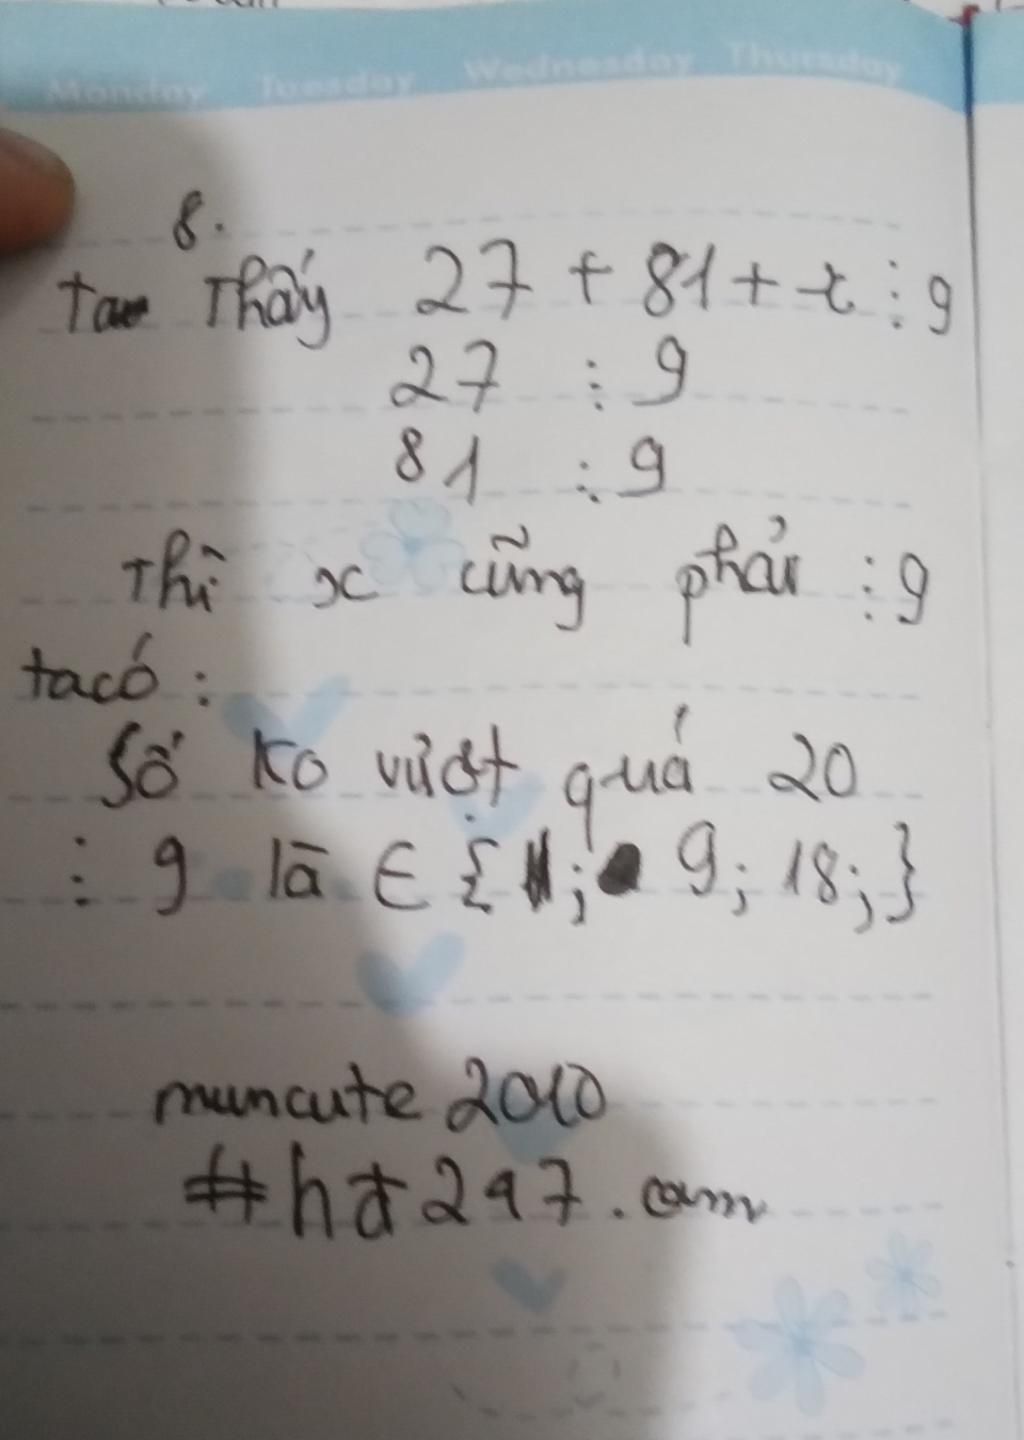 Monday Tuesday Wednesday Thursday
8.
ta Thấy 27 + 81 + x ⋮ 9
27 ⋮ 9
81 ⋮ 9
Thì x cũng phải ⋮ 9
ta có :
Số ko vượt quá 20
⋮ 9 là ∈ { ; 9; 18; }
muncute 2010
#hđ 247.com